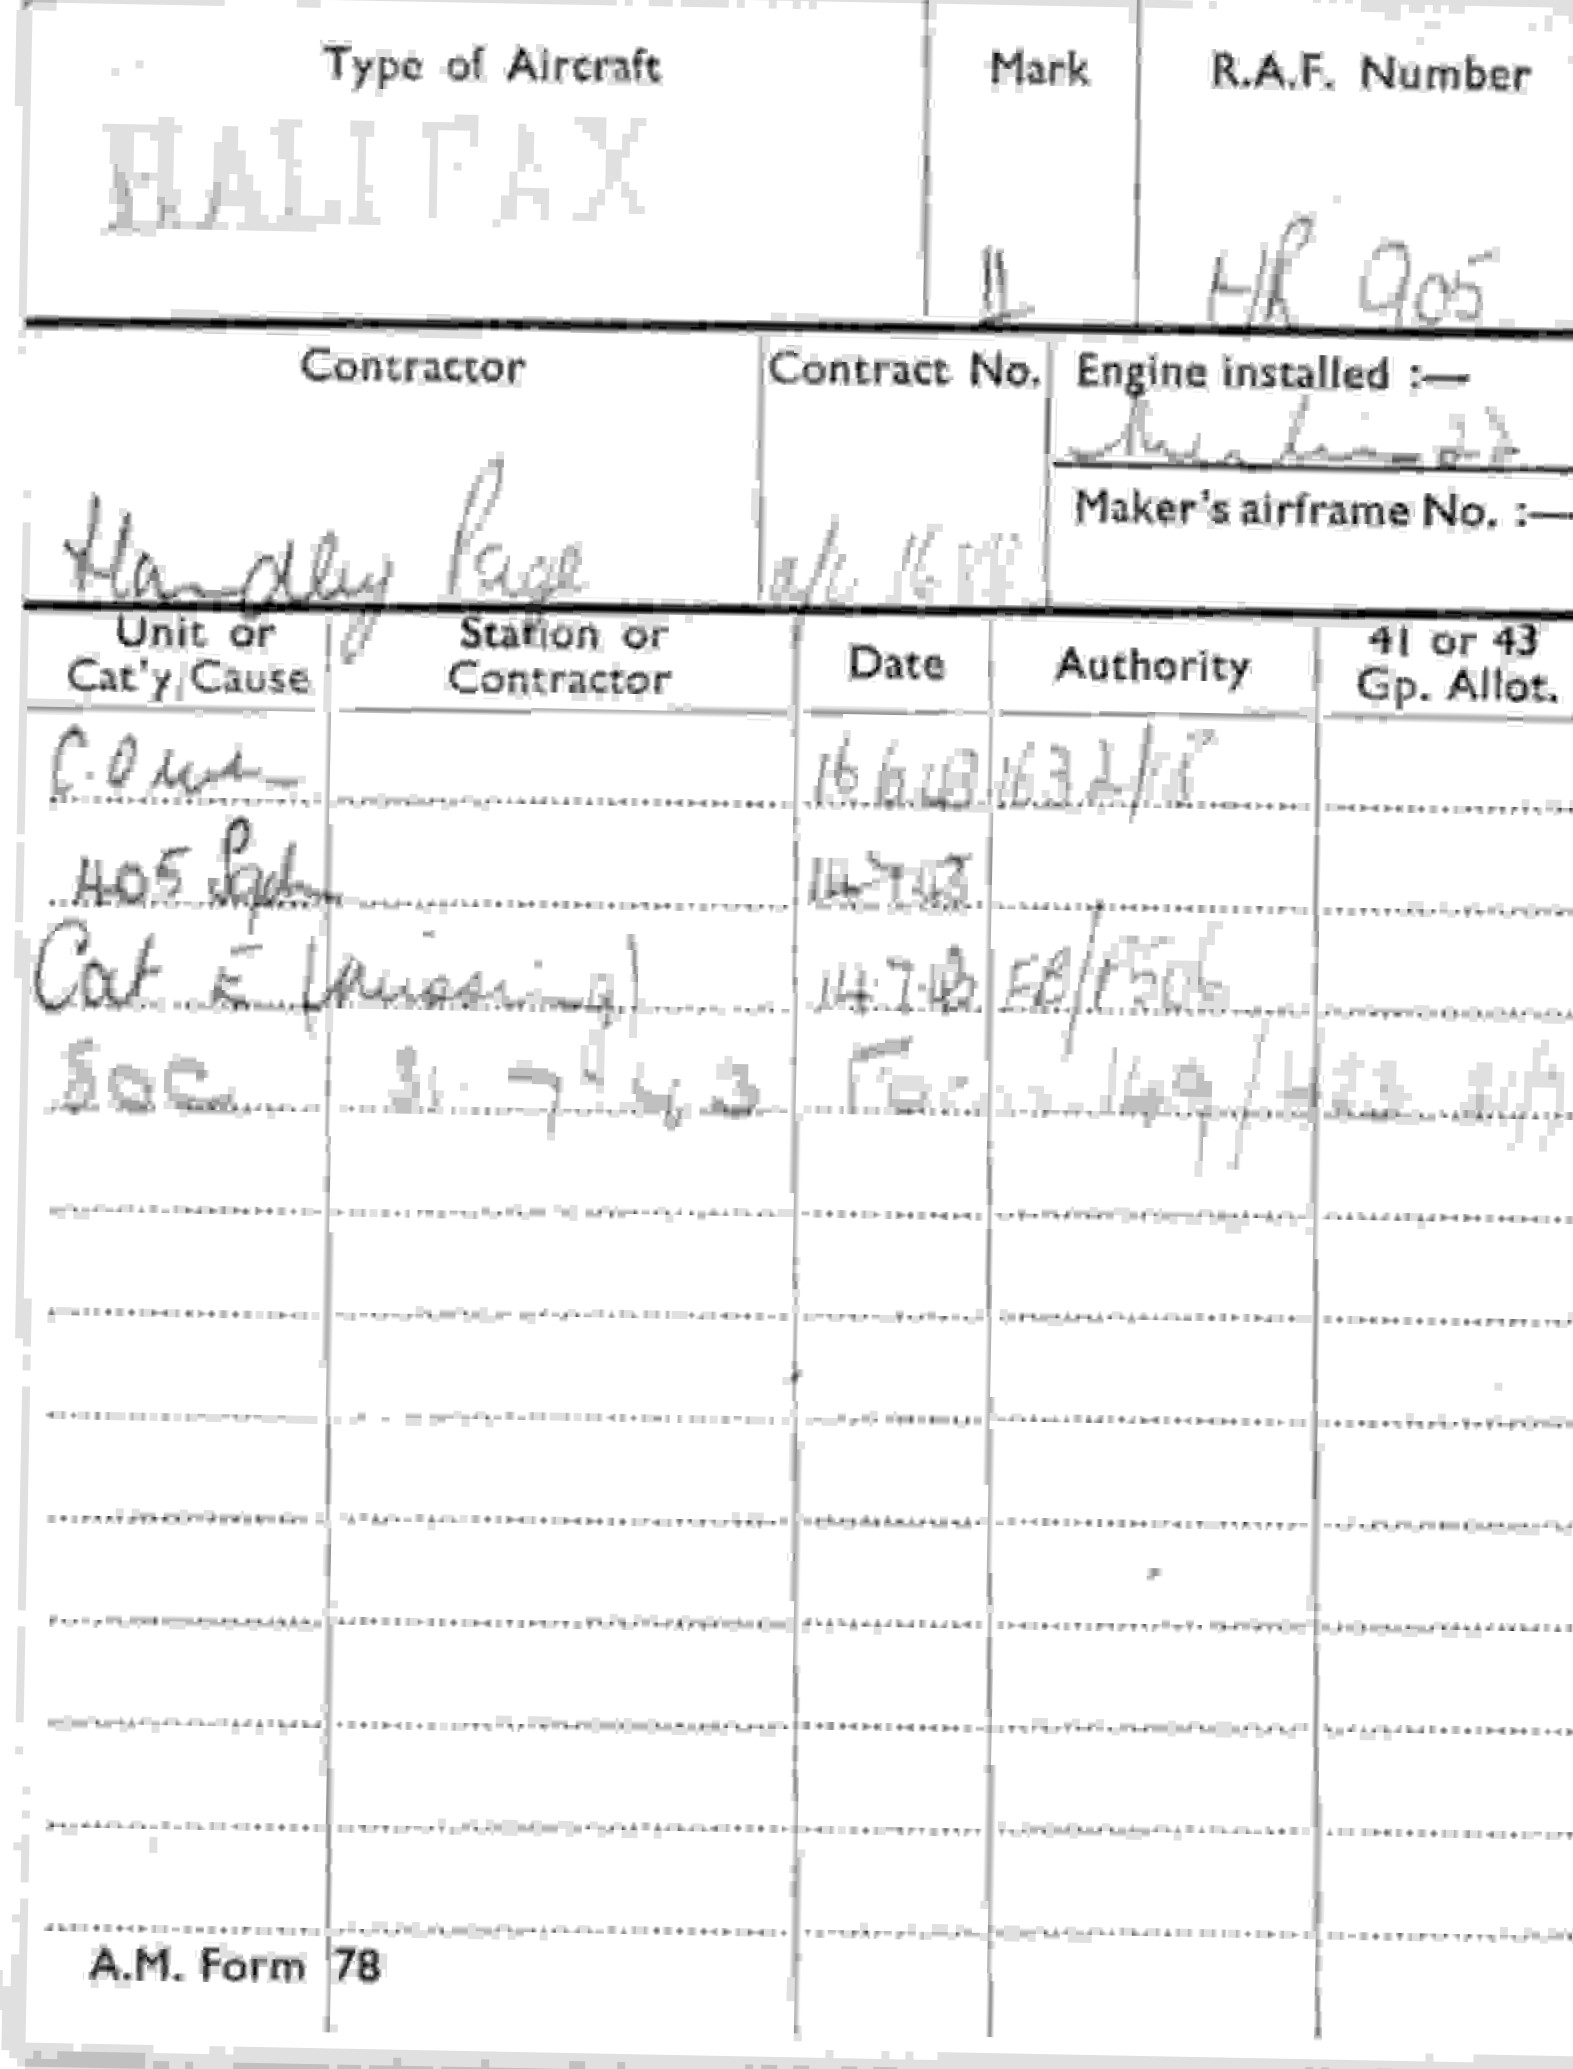 Type of Aircraft Mark R.A.F. Number
HALIFAX II HR 905
Contractor Contract No. Engine installed :—
Handley Page
Maker's airframe No. :—
Unit or Cat'y/Cause Station or Contractor Date Authority 41 or 43 Gp. Allot.
16.6.43
405 Sqdn 14.7.43
Cat E (missing) 14.7.43
SOC 31 7 43
A.M. Form 78